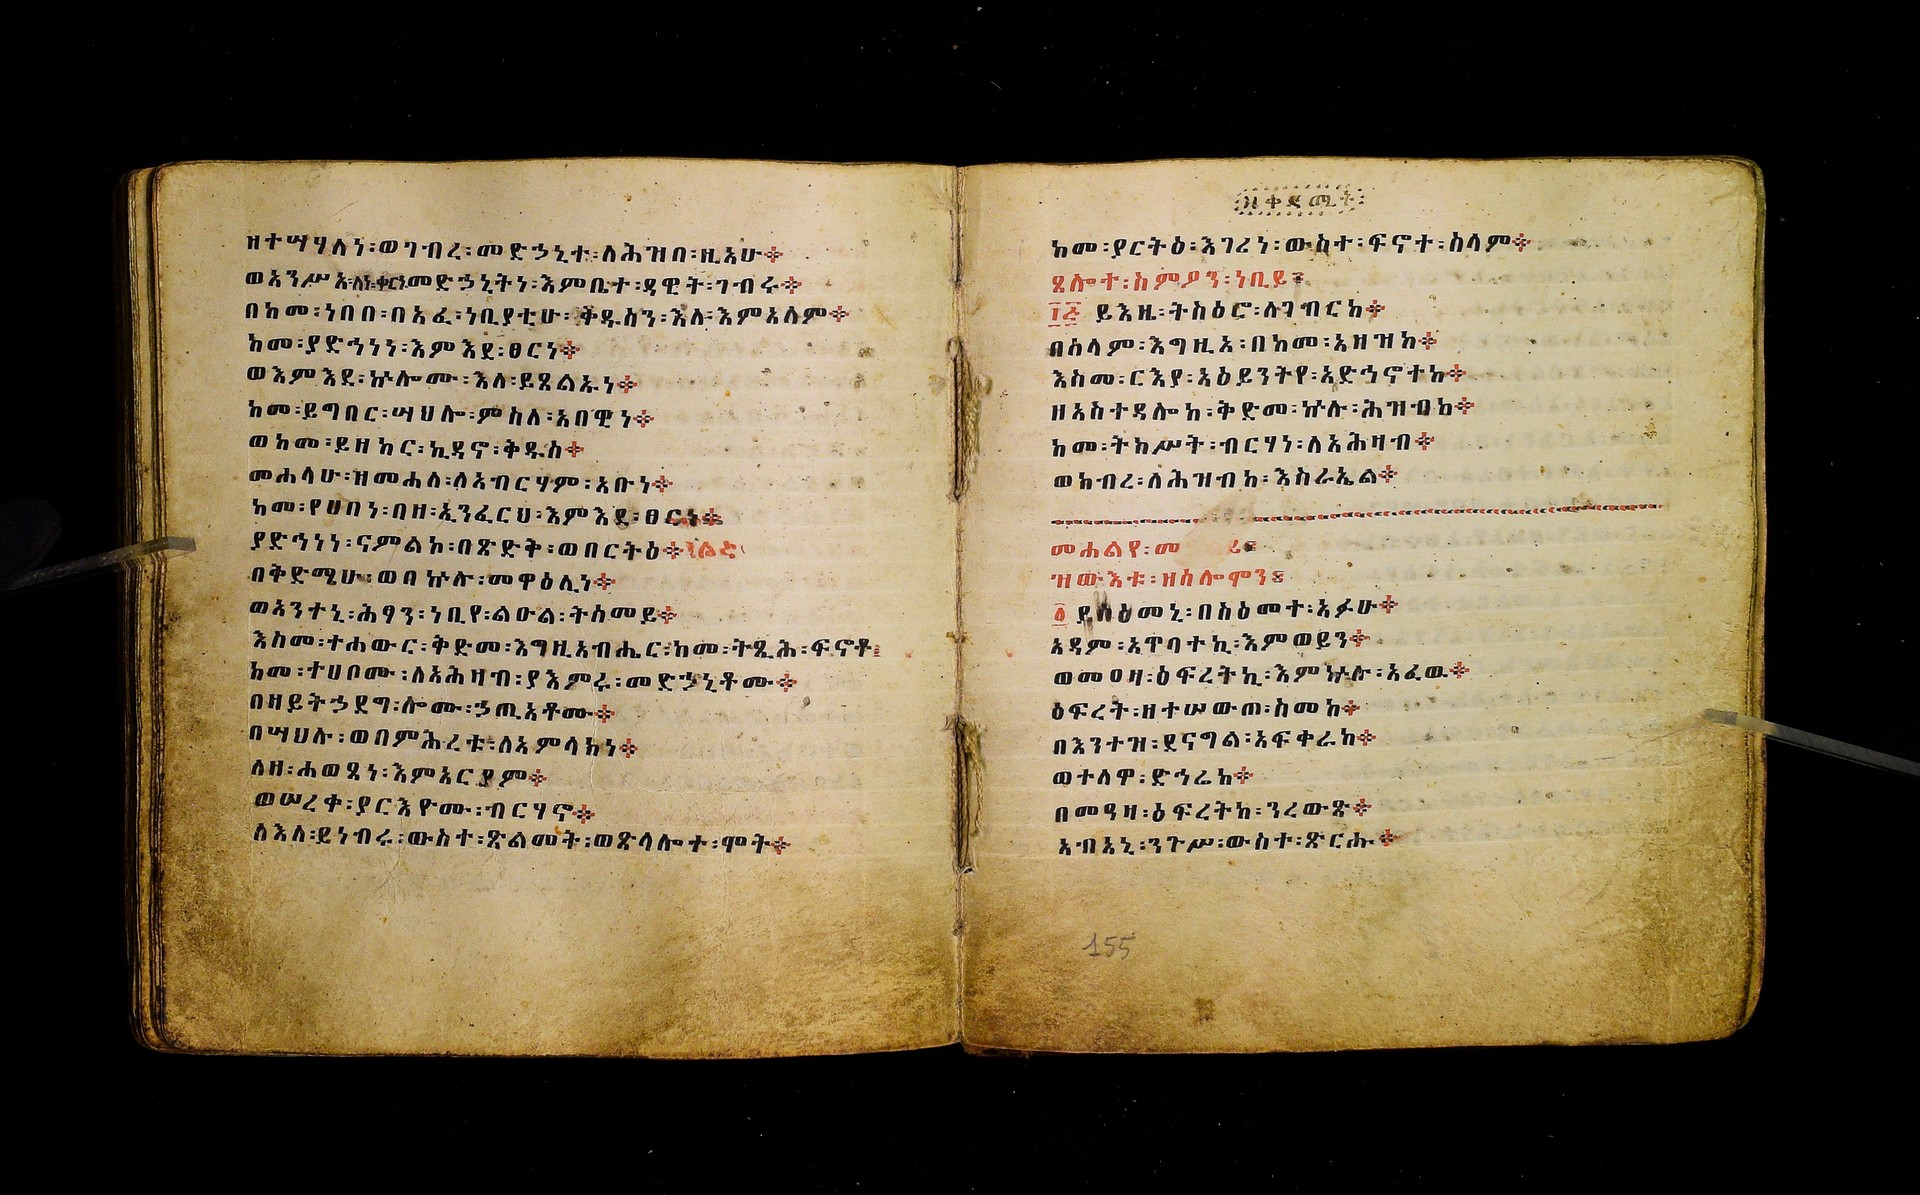 ዘተሣሃለነ፡ወገብረ፡መድኃኒተ፡ለሕዝበ፡ዚአሁ፨
ወአንሥአ፡ለነ፡ቀርነ፡መድኃኒትነ፡እምቤተ፡ዳዊት፡ገብሩ፨
በከመ፡ነበበ፡በአፈ፡ነቢያቲሁ፡ቅዱሳን፡እለ፡እምዓለም፨
ከመ፡ያድኅነነ፡እምእደ፡ፀርነ፨
ወእምእደ፡ኵሎሙ፡እለ፡ይጸልኡነ፨
ከመ፡ይግበር፡ሣህሎ፡ምስለ፡አበዊነ፨
ወከመ፡ይዘከር፡ኪዳኖ፡ቅዱስ፨
መሐላሁ፡ዘመሐለ፡ለአብርሃም፡አቡነ፨
ከመ፡የሀበነ፡በዘ፡ኢንፈርህ፡እምእደ፡ፀርነ፨
ያድኅነነ፡ናምልኮ፡በጽድቅ፡ወበርትዕ፨
በቅድሜሁ፡ወበኵሉ፡መዋዕሊነ፨
ወአንተኒ፡ሕፃን፡ነቢየ፡ልዑል፡ትሰመይ፨
እስመ፡ተሐውር፡ቅድመ፡እግዚአብሔር፡ከመ፡ትጺሕ፡ፍኖቶ፡
ከመ፡ተሀቦሙ፡ለአሕዛብ፡ያእምሩ፡መድኃኒቶሙ፨
በዘይትኃደግ፡ሎሙ፡ኃጢአቶሙ፨
በሣህሉ፡ወበምሕረቱ፡ለአምላክነ፨
በዘ፡ሐወጸነ፡እምአርያም፨
ወሠረቀ፡ያርእዮሙ፡ብርሃኖ፨
ለእለ፡ይነብሩ፡ውስተ፡ጽልመት፡ወጽላሎተ፡ሞት፨
ዘቀዳሚት፡
ከመ፡ያርትዕ፡እገሪነ፡ውስተ፡ፍኖተ፡ሰላም፨
ጸሎተ፡ስምዖን፡ነቢይ፡
፲፭ ይእዜ፡ትስዕሮ፡ለገብርከ፨
በሰላም፡እግዚአ፡በከመ፡አዘዝከ፨
እስመ፡ርእያ፡አዕይንትየ፡አድኅኖተከ፨
ዘአስተዳሎከ፡ቅድመ፡ኵሉ፡ሕዝብከ፨
ከመ፡ትክሥት፡ብርሃነ፡ለአሕዛብ፨
ወክብረ፡ለሕዝብከ፡እስራኤል፨
መሐልየ፡
ዝውእቱ፡ዘሰሎሞን፡
፩ ይስዕመኒ፡በስዕመተ፡አፉሁ፨
አዳም፡አጥባተኪ፡እምወይን፨
ወመዐዛ፡ዕፍረትኪ፡እምኵሉ፡አፈዉ፨
ዕፍረት፡ዘተሠውጠ፡ስመከ፨
በእንተዝ፡ደናግል፡አፍቀራከ፨
ወተለዋ፡ድኅሬከ፨
በመዓዛ፡ዕፍረትከ፡ንረውጽ፨
አብአኒ፡ንጉሥ፡ውስተ፡ጽርሑ፨
155